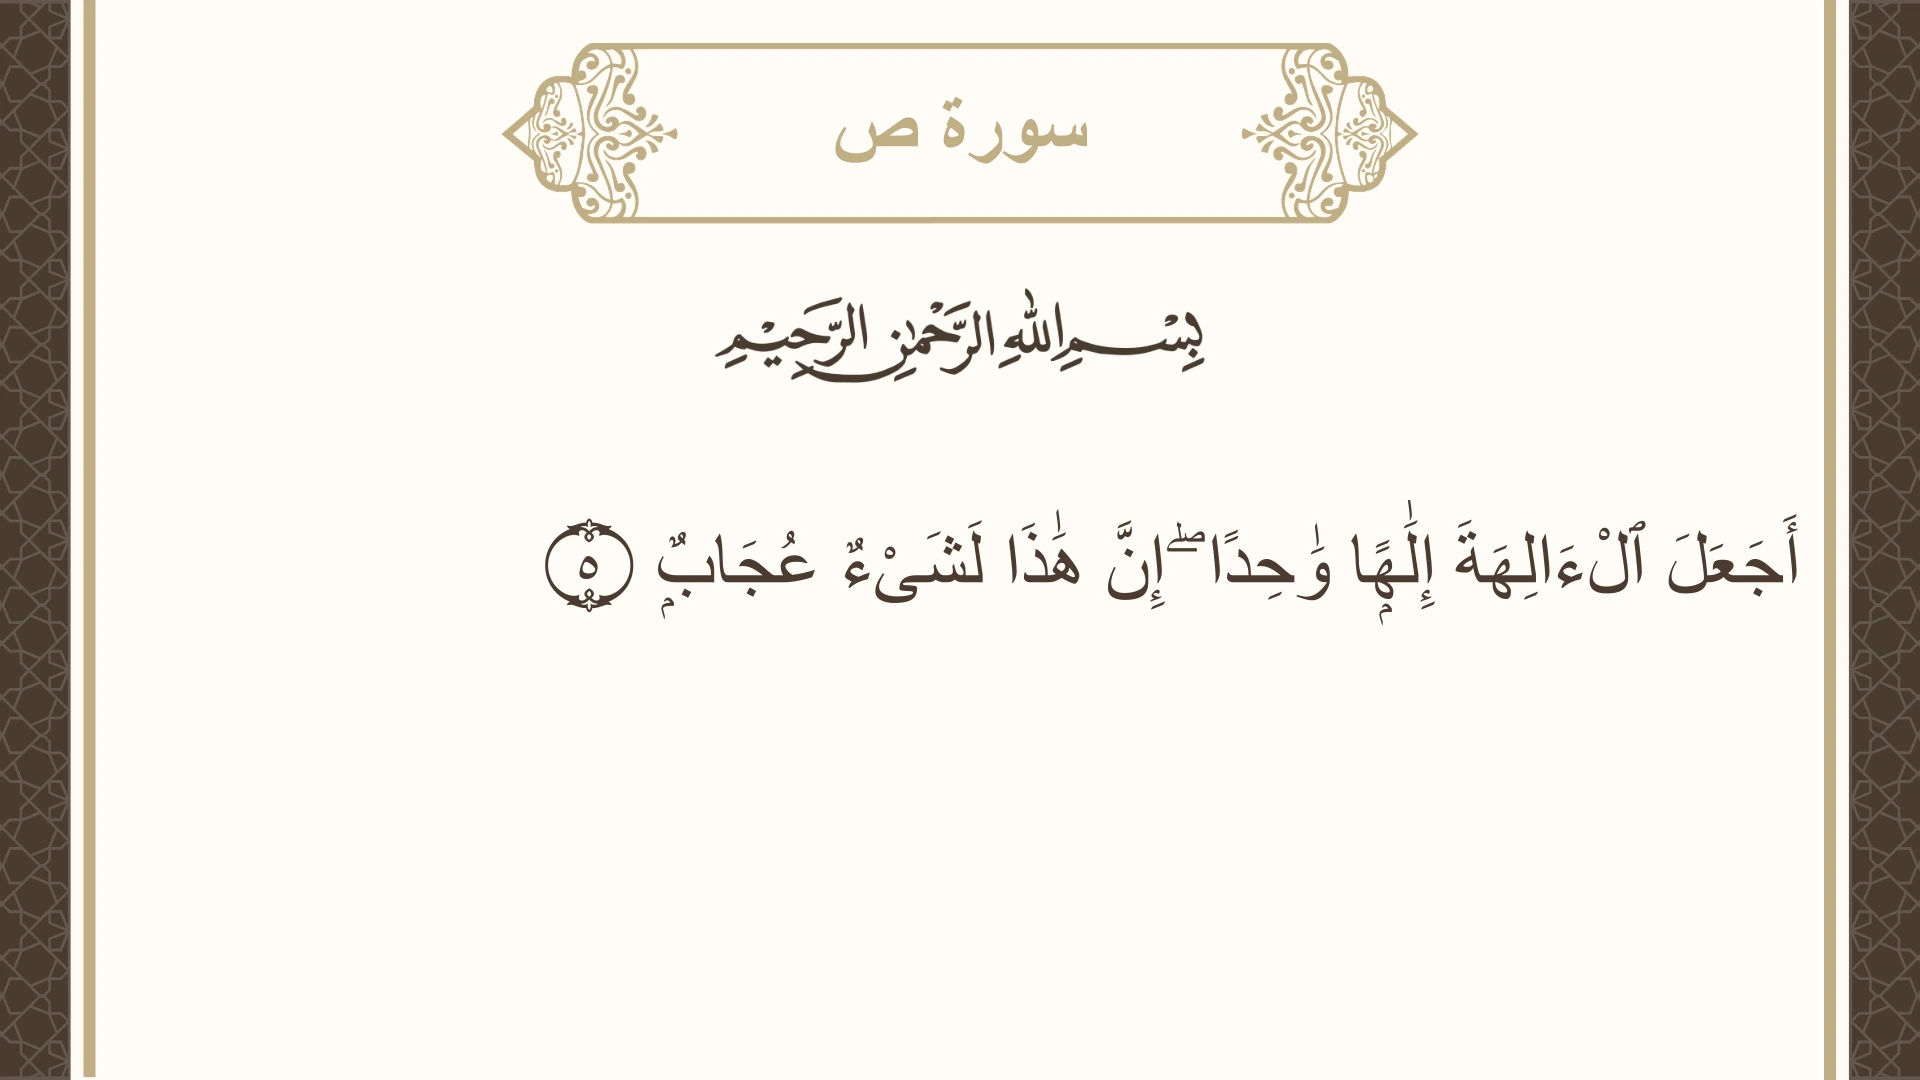 سورة ص
بِسْمِ اللهِ الرَّحْمٰنِ الرَّحِيْمِ
أَجَعَلَ ٱلْءَالِهَةَ إِلَٰهًۭا وَٰحِدًا ۖ إِنَّ هَٰذَا لَشَىْءٌ عُجَابٌۭ ۝٥